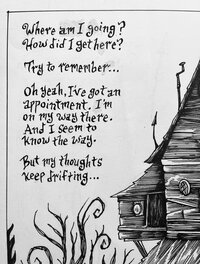 Where am I going?
How did I get here?
Try to remember...
Oh yeah, I've got an
appointment. I'm
on my way there.
And I seem to
know the way.
But my thoughts
keep drifting...